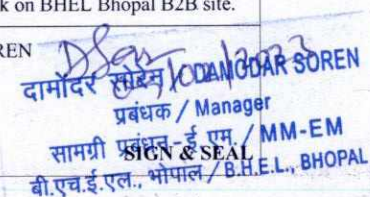 k on BHEL Bhopal B2B site.
REN
दामोदर सोरेन / DAMODAR SOREN
प्रबंधक / Manager
सामग्री प्रबंधन-ई.एम. / MM-EM
SIGN & SEAL
बी.एच.ई.एल., भोपाल / B.H.E.L., BHOPAL